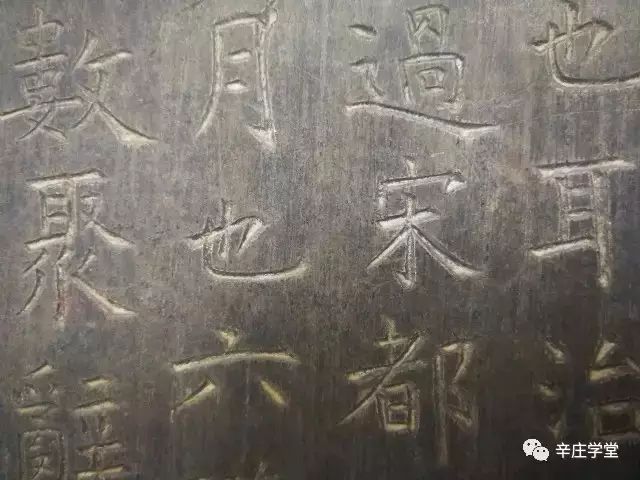 也耳治
過宋都
月也六
數聚辭
辛庄学堂